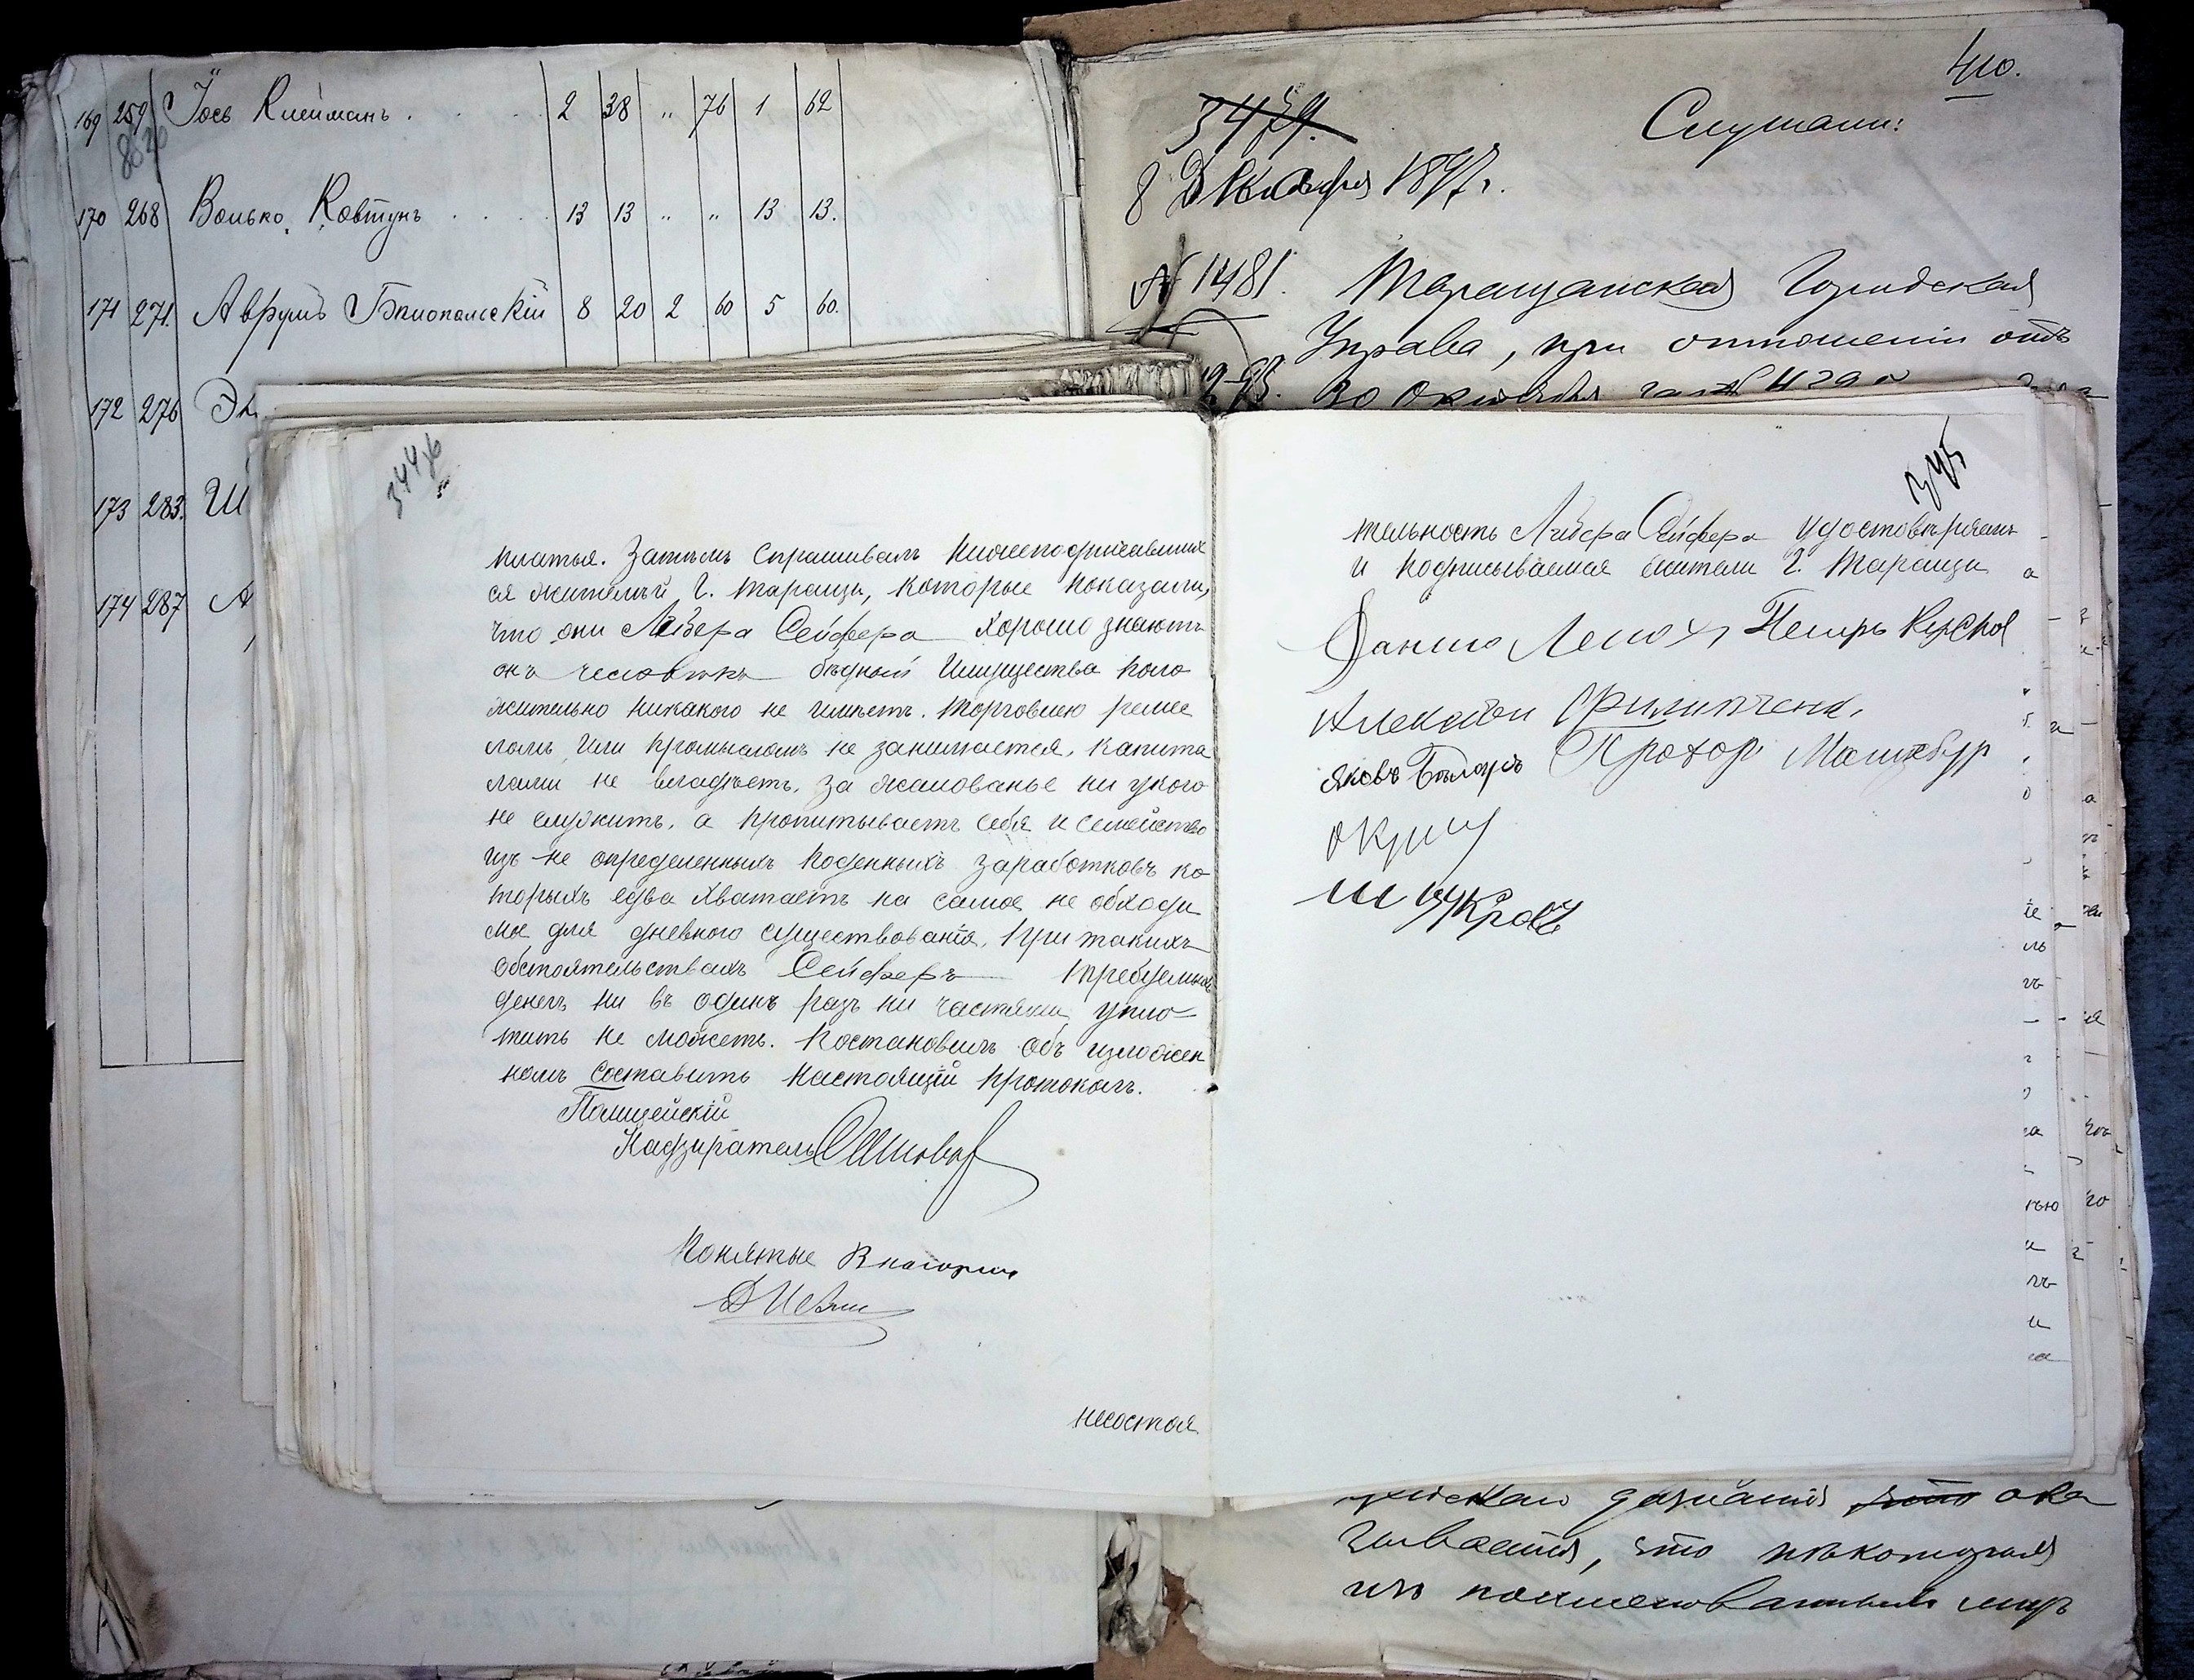 169 259 Іось Клейманъ . . . . 2 38 „ 76 1 62
170 268 Волько Ковтунъ . . . . 13 13 „ „ 13 13.
171 271. Аврумъ Бялопольскій 8 20 2 60 5 60.
172 276
173 283. Ш
174 287 А
410.
Слушали:
3479.
8 Декабря 1897 г.
№ 1481. Таращанская Городская
Управа, при отношеніи отъ
30 Октября
344 об
платья. Затѣмъ спрашивалъ нижеподписавших
ся жителей г. Таращи, которые показали,
что они Лейзера Сейфера хорошо знаютъ
онъ человѣкъ бѣдный имущества поло
жительно никакого не имѣетъ. Торговлею ремес
ломъ или промысломъ не занимается, капита
лами не владѣетъ, за жалованье ни у кого
не служитъ, а пропитываетъ себя и семейство
изъ не определенныхъ поденныхъ заработковъ ко
торыхъ едва хватаетъ на самое не обходи
мое для дневного существованія. При такихъ
обстоятельствахъ Сейферъ требуемыхъ
денегъ ни въ одинъ разъ ни частями упло-
тить не можетъ. Постановилъ объ изложен
номъ составить настоящій протоколъ.
Полицейскій
Надзиратель
Понятые
несостоя
345
тельность Лейзера Сейфера удостовѣряемъ
и подписываемся жители г. Таращи
Данило Петръ
Филипченк.
Яковъ Прохоръ
дознанія что ока
зывается, что нѣкоторыя
изъ поименованныхъ